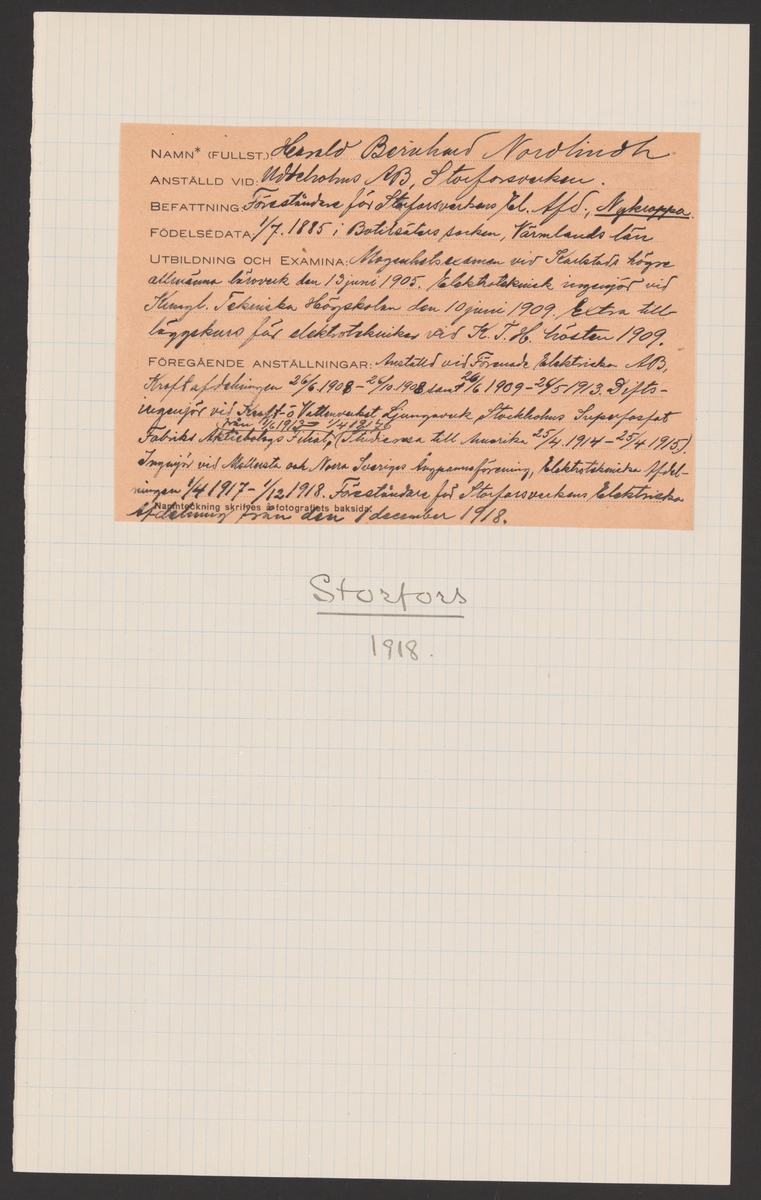 NAMN* (FULLST.) Harald Bernhard Nordlindh
ANSTÄLLD VID: Uddeholms AB, Storforsverken.
BEFATTNING: Föreståndare för Storforsverkens El. Afd., Nykroppa.
FÖDELSEDATA: 1/7. 1885 i Botilsäters socken, Värmlands län
UTBILDNING OCH EXAMINA: Mogenhetsexamen vid Karlstads högre
allmänna läroverk den 13 juni 1905. Elektroteknisk ingenjör vid
Kungl. Tekniska Högskolan den 10 juni 1909. Extra till-
läggskurs för elektrotekniker vid K. T. H. hösten 1909.
FÖREGÅENDE ANSTÄLLNINGAR: Anställd vid Förenade Elektriska AB,
Kraftafdelningen 26/6 1908 – 26/10 1908 samt 26/6 1909 – 24/5 1913. Drifts-
ingenjör vid Kraft- o Vattenverket Ljungaverk, Stockholms Superfosfat
från 1/6 1913 – 1/4 1916
Fabriks Aktiebolags Filial, (Studieresa till Amerika 25/4 1914 – 25/4 1915).
Ingenjör vid Mellersta och Norra Sveriges Ångpanneförening, Elektrotekniska Afdel-
ningen 1/4 1917 – 1/12 1918. Föreståndare för Storforsverkens Elektriska
Namnteckning skrifves å fotografiets baksida.
Afdelning från den 1 december 1918.
Storfors
1918.